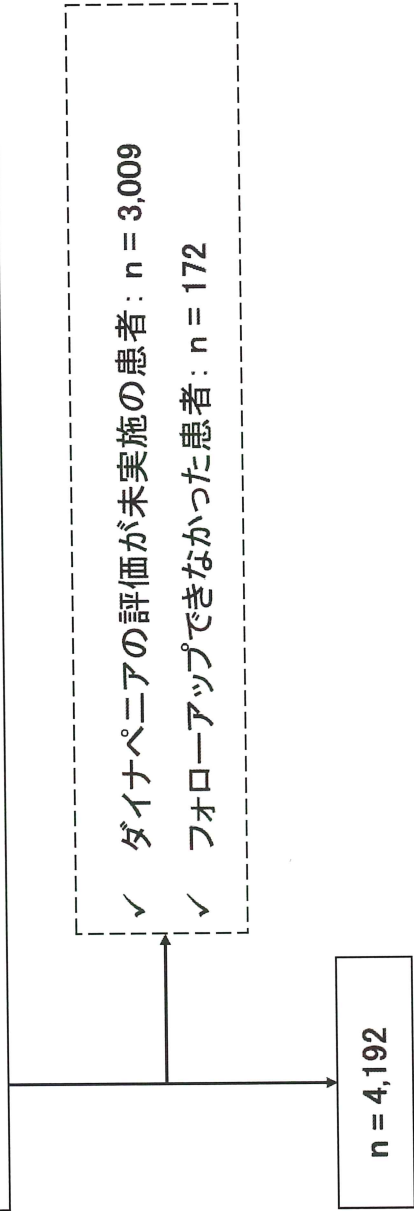 ✓ ダイナペニアの評価が未実施の患者: n = 3,009
✓ フォローアップできなかった患者: n = 172
n = 4,192